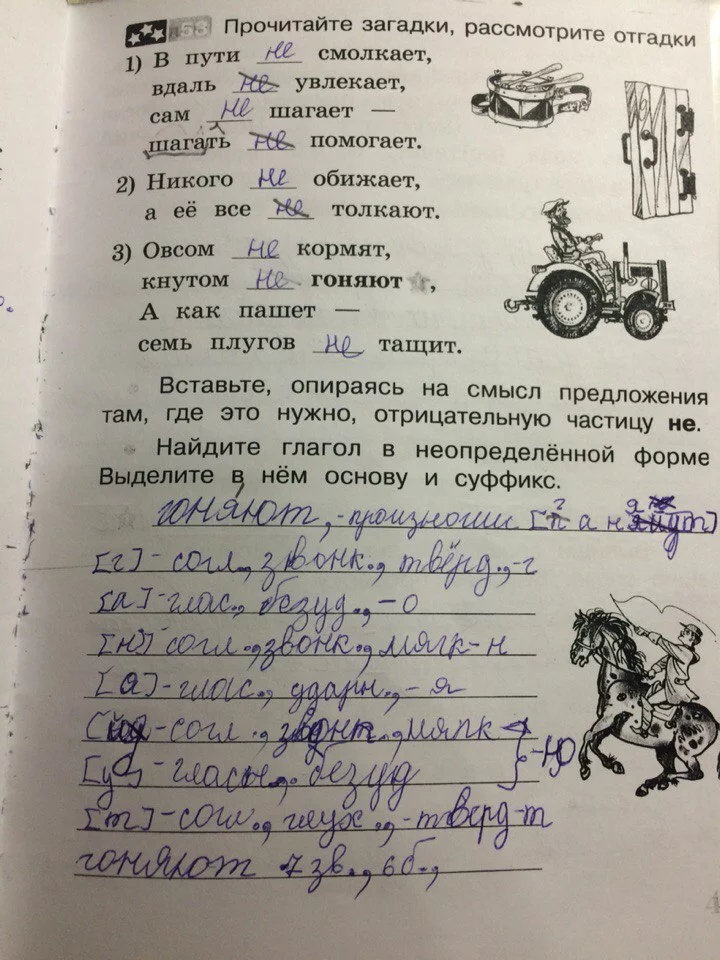 53 Прочитайте загадки, рассмотрите отгадки
1) В пути не смолкает,
вдаль не увлекает,
сам не шагает —
шагать не помогает.
2) Никого не обижает,
а её все не толкают.
3) Овсом не кормят,
кнутом не гоняют,
А как пашет —
семь плугов не тащит.
Вставьте, опираясь на смысл предложения
там, где это нужно, отрицательную частицу не.
Найдите глагол в неопределённой форме
Выделите в нём основу и суффикс.
гоняют, -произносим [г а н
[г]-согл., звонк., твёрд.,-г
[а]-глас., безуд., -о
[н]-согл.,звонк., мягк-н
[а]-глас., ударн.,-я
-согл., звонк., мягк
[у]-гласн., безуд } -Ю
[т]-согл., глух.,-тверд-т
гоняют 7зв., 6б.,
4